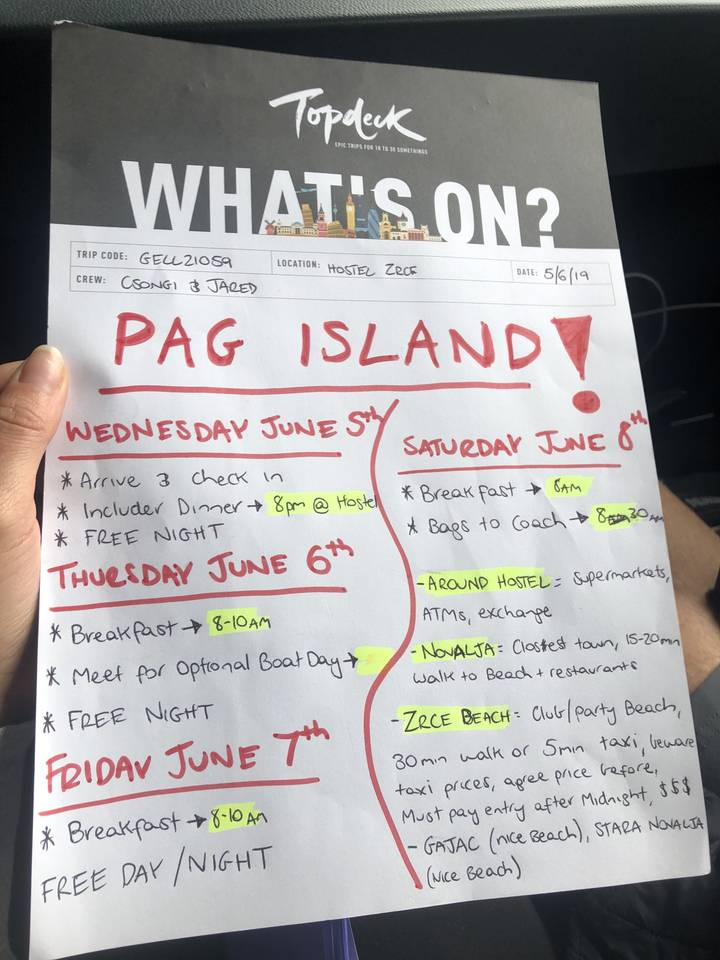 Topdeck
EPIC TRIPS FOR 18 TO 30 SOMETHINGS
WHAT'S ON?
TRIP CODE: GELL21059 LOCATION: HOSTEL ZRCE DATE: 5/6/19
CREW: CSONGI & JARED
PAG ISLAND!
WEDNESDAY JUNE 5th
* Arrive & check in
* Includer Dinner → 8pm @ Hostel
* FREE NIGHT
THURSDAY JUNE 6th
* Breakfast → 8-10AM
* Meet for Optional Boat Day →
* FREE NIGHT
FRIDAY JUNE 7th
* Breakfast → 8-10AM
FREE DAY/NIGHT
SATURDAY JUNE 8th
* Breakfast → 8AM
* Bags to Coach → 8 30AM
- AROUND HOSTEL = Supermarkets,
ATMs, exchange
- NOVALJA = Closest town, 15-20min
walk to Beach + restaurants
- ZRCE BEACH = Club/party Beach,
30min walk or 5min taxi, beware
taxi prices, agree price before,
Must pay entry after Midnight, $5$
- GAJAC (nice Beach), STARA NOVALJA
(Nice Beach)